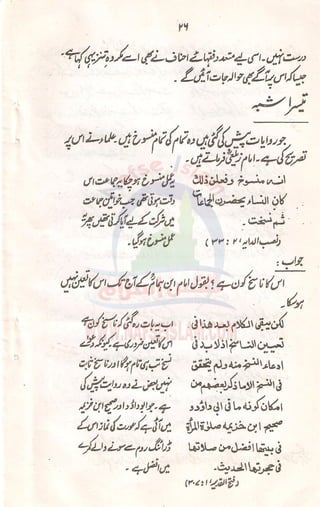 ۲۶
درست نہیں۔ اسی لیے متعدد فقہائے احناف نے بھی اسے مکروہ تنزیہی کہا ہے۔
جیسا کہ اس پر آگے بھی حوالہ جات آئیں گے۔
تیسرا شبہ
جو روایات پیش کی گئی ہیں وہ تمام کی تمام منسوخ ہیں۔ علماء نے اس پر
تصریح کی ہے۔ امام زیلعیؒ فرماتے ہیں۔
انه منسوخ وفعلن ذلك
كان النساء يحضرن الجماعات
ثم نسخت۔
(نصب الرایہ ۲ : ۳۳)
یہ عمل منسوخ ہو چکا یہ جماعت اس
وقت ہوتی تھی جب خواتین جماعت
میں شرکت کے لیے آیا کرتی تھیں پھر یہ
عمل منسوخ ہو گیا۔
جواب :
اس کا ناسخ کون ہے ؟ بقول امام ابن ہمامؒ کے آج تک اس کا تعین نہیں
ہو سکا۔
لكن يبقى الكلام بعد هذا فى
تعيين الناسخ اذ لا بد فى
ادعاء النسخ منه ولم يتحقق
فى النسخ الا ما ذكر بعضهم من
امكان كونه ما فى ابى داؤد و
صحيح ابن خزيمة صلوٰة المرأة
فى بيتها افضل من صلاتها
فى حجرتها الحديث۔
(فتح القدیر ۱ : ۳۰۷)
اب یہ بات رہ گئی کہ ناسخ کون ہے
اس کا تعین ضروری ہے کیونکہ دعوائے
نسخ تب ہی تام ہو گا اور ناسخ ثابت
نہیں بعض نے وہ روایت پیش کی
ہے۔ جو ابو داؤد اور صحیح ابن خزیمہ
میں آئی ہے کہ عورت کی نماز اس کے
ڈرائنگ روم سے سونے والے کمرے
میں افضل ہے۔